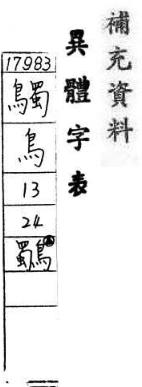 補充資料
異體字表
17983
鳥
13
24
鸀